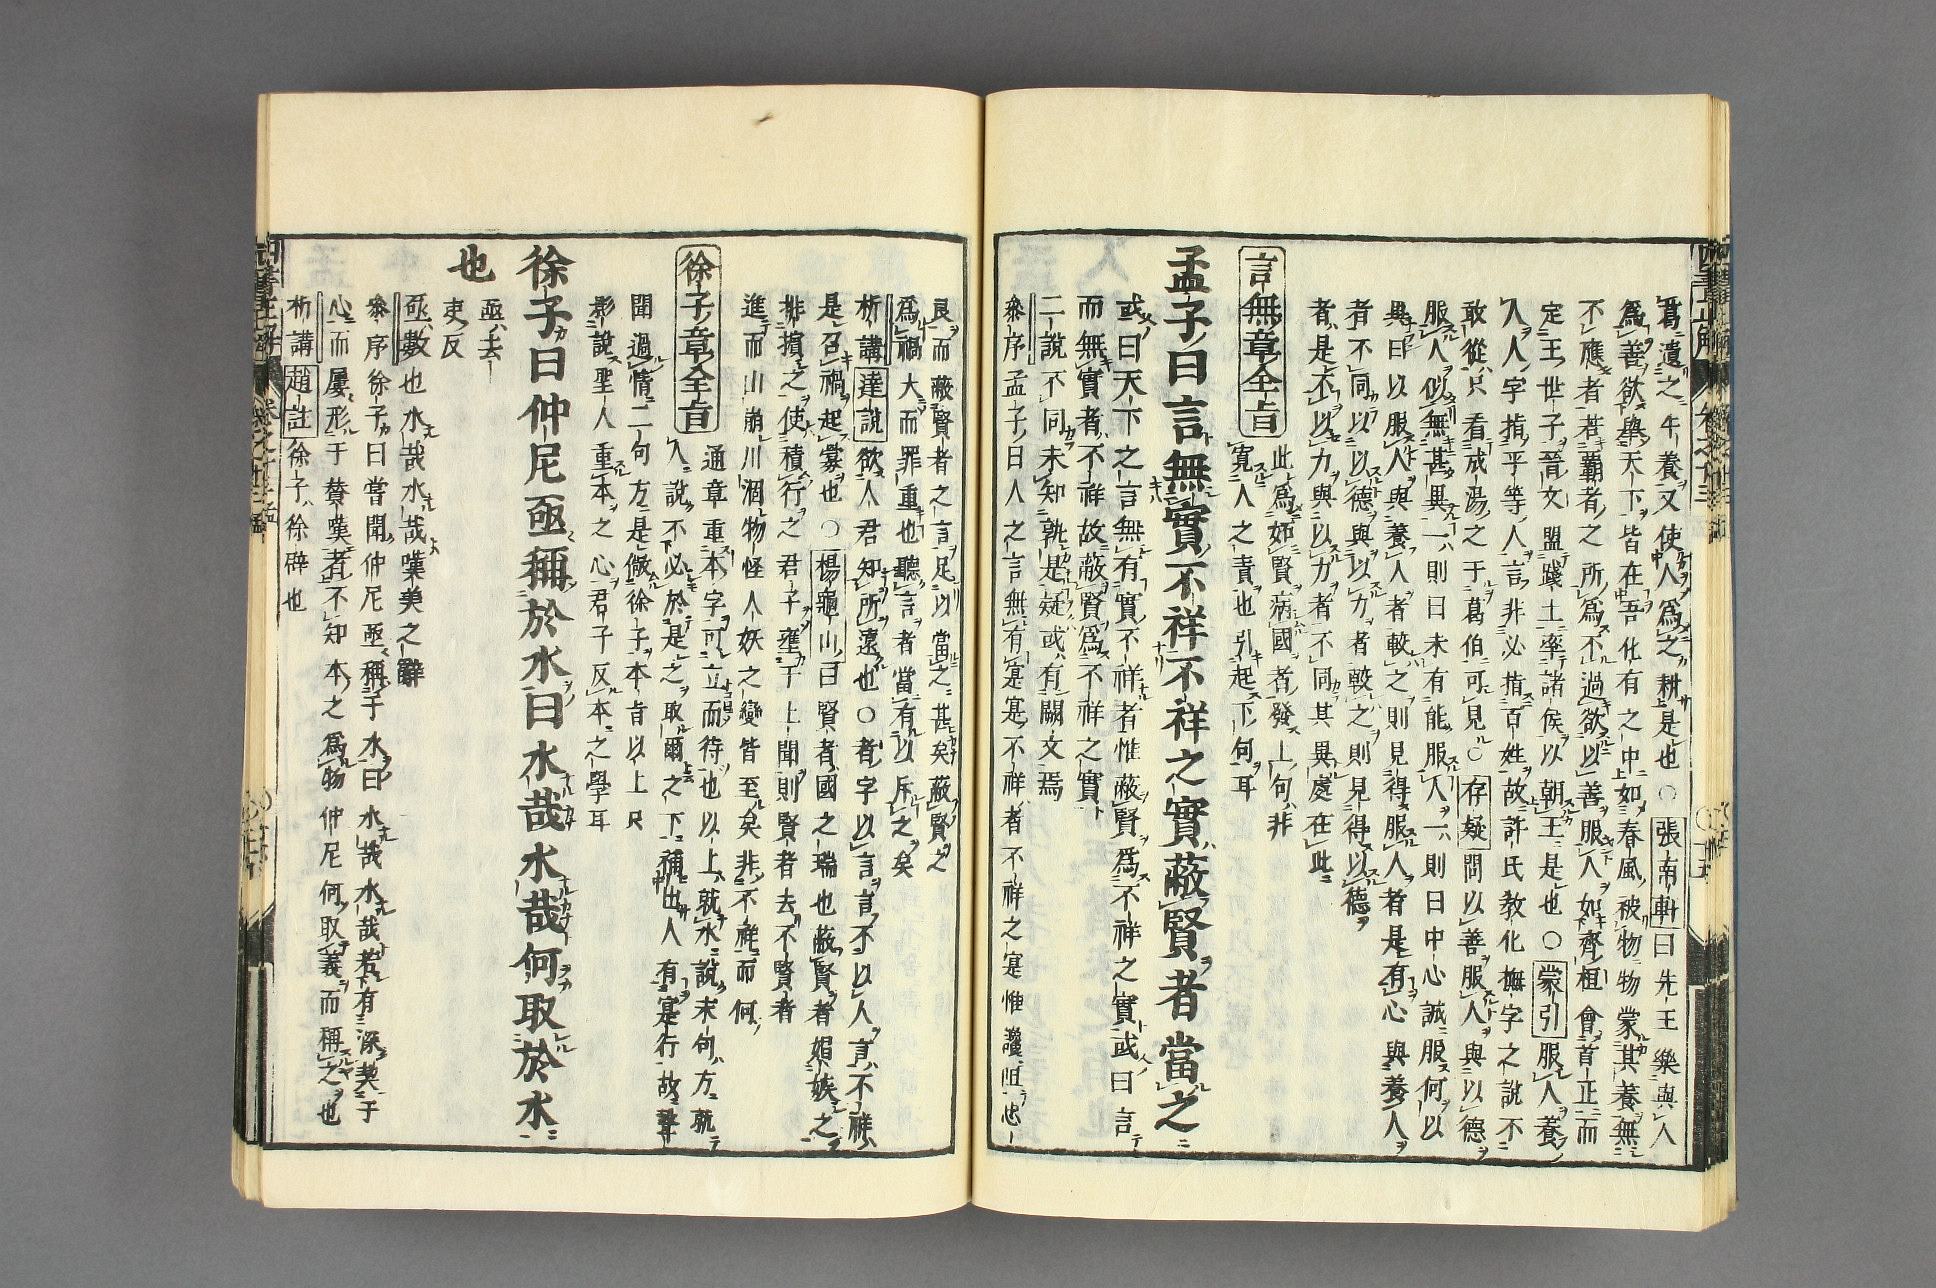 葛遺之牛養又使人爲之耕是也○張南軒曰先王樂與人
爲善欲擧天下皆在吾化育之中如春風被物物蒙其養無
不應者若覇者之所爲不過欲以善服人如齊桓會首止而
定王世子晉文盟踐土率諸侯以朝王是也○蒙引服人養
人人字指平等人言非必指百姓故許氏教化撫字之說不
敢從只看成湯之于葛伯可見○存疑問以善服人與以德
服人似無甚異一則曰未有能服人一則曰中心誠服何以
異曰以服人與養人者較之則見得服人者是有心與養人
者不同以以德與以力者較之則見得以德
者是不以力與以力者不同其異處在此
言無章全旨
此爲妬賢病國者發上句非
寬人之責也引起下句耳
孟子曰言無實不祥不祥之實蔽賢者當之
或曰天下之言無有實不祥者惟蔽賢爲不祥之實或曰言
而無實者不祥故蔽賢爲不祥之實
二說不同未知孰是疑或有闕文焉
參序孟子曰人之言無有寔寔不祥者不祥之寔惟讒阻忠
良而蔽賢者之言足以當之甚矣蔽賢之
爲禍大而罪重也聽言者當有以斥之矣
析講達說欲人君知所遠也○者字以言言不以人言不祥
是召禍起衅也○楊龜山曰賢者國之瑞也蔽賢者媢嫉之
排擯之使積行之君子壅于上聞則賢者去不賢者
進而山崩川涸物怪人妖之變皆至矣非不祥而何
徐子章全旨
通章重本字可立而待也以上就水說末句方就
人說不必於是之取爾之下補出人有寔行故擊
聞過情二句方是倣徐子本旨以上只
影說聖人重本之心君子反本之學耳
徐子曰仲尼亟稱於水曰水哉水哉何取於水
也
亟去
吏反
亟數也水哉水哉嘆美之辭
參序徐子曰嘗聞仲尼亟稱于水曰水哉水哉若有深契于
心而屢形于贊嘆者不知本之爲物仲尼何取義而稱之也
析講趙註徐子徐辟也